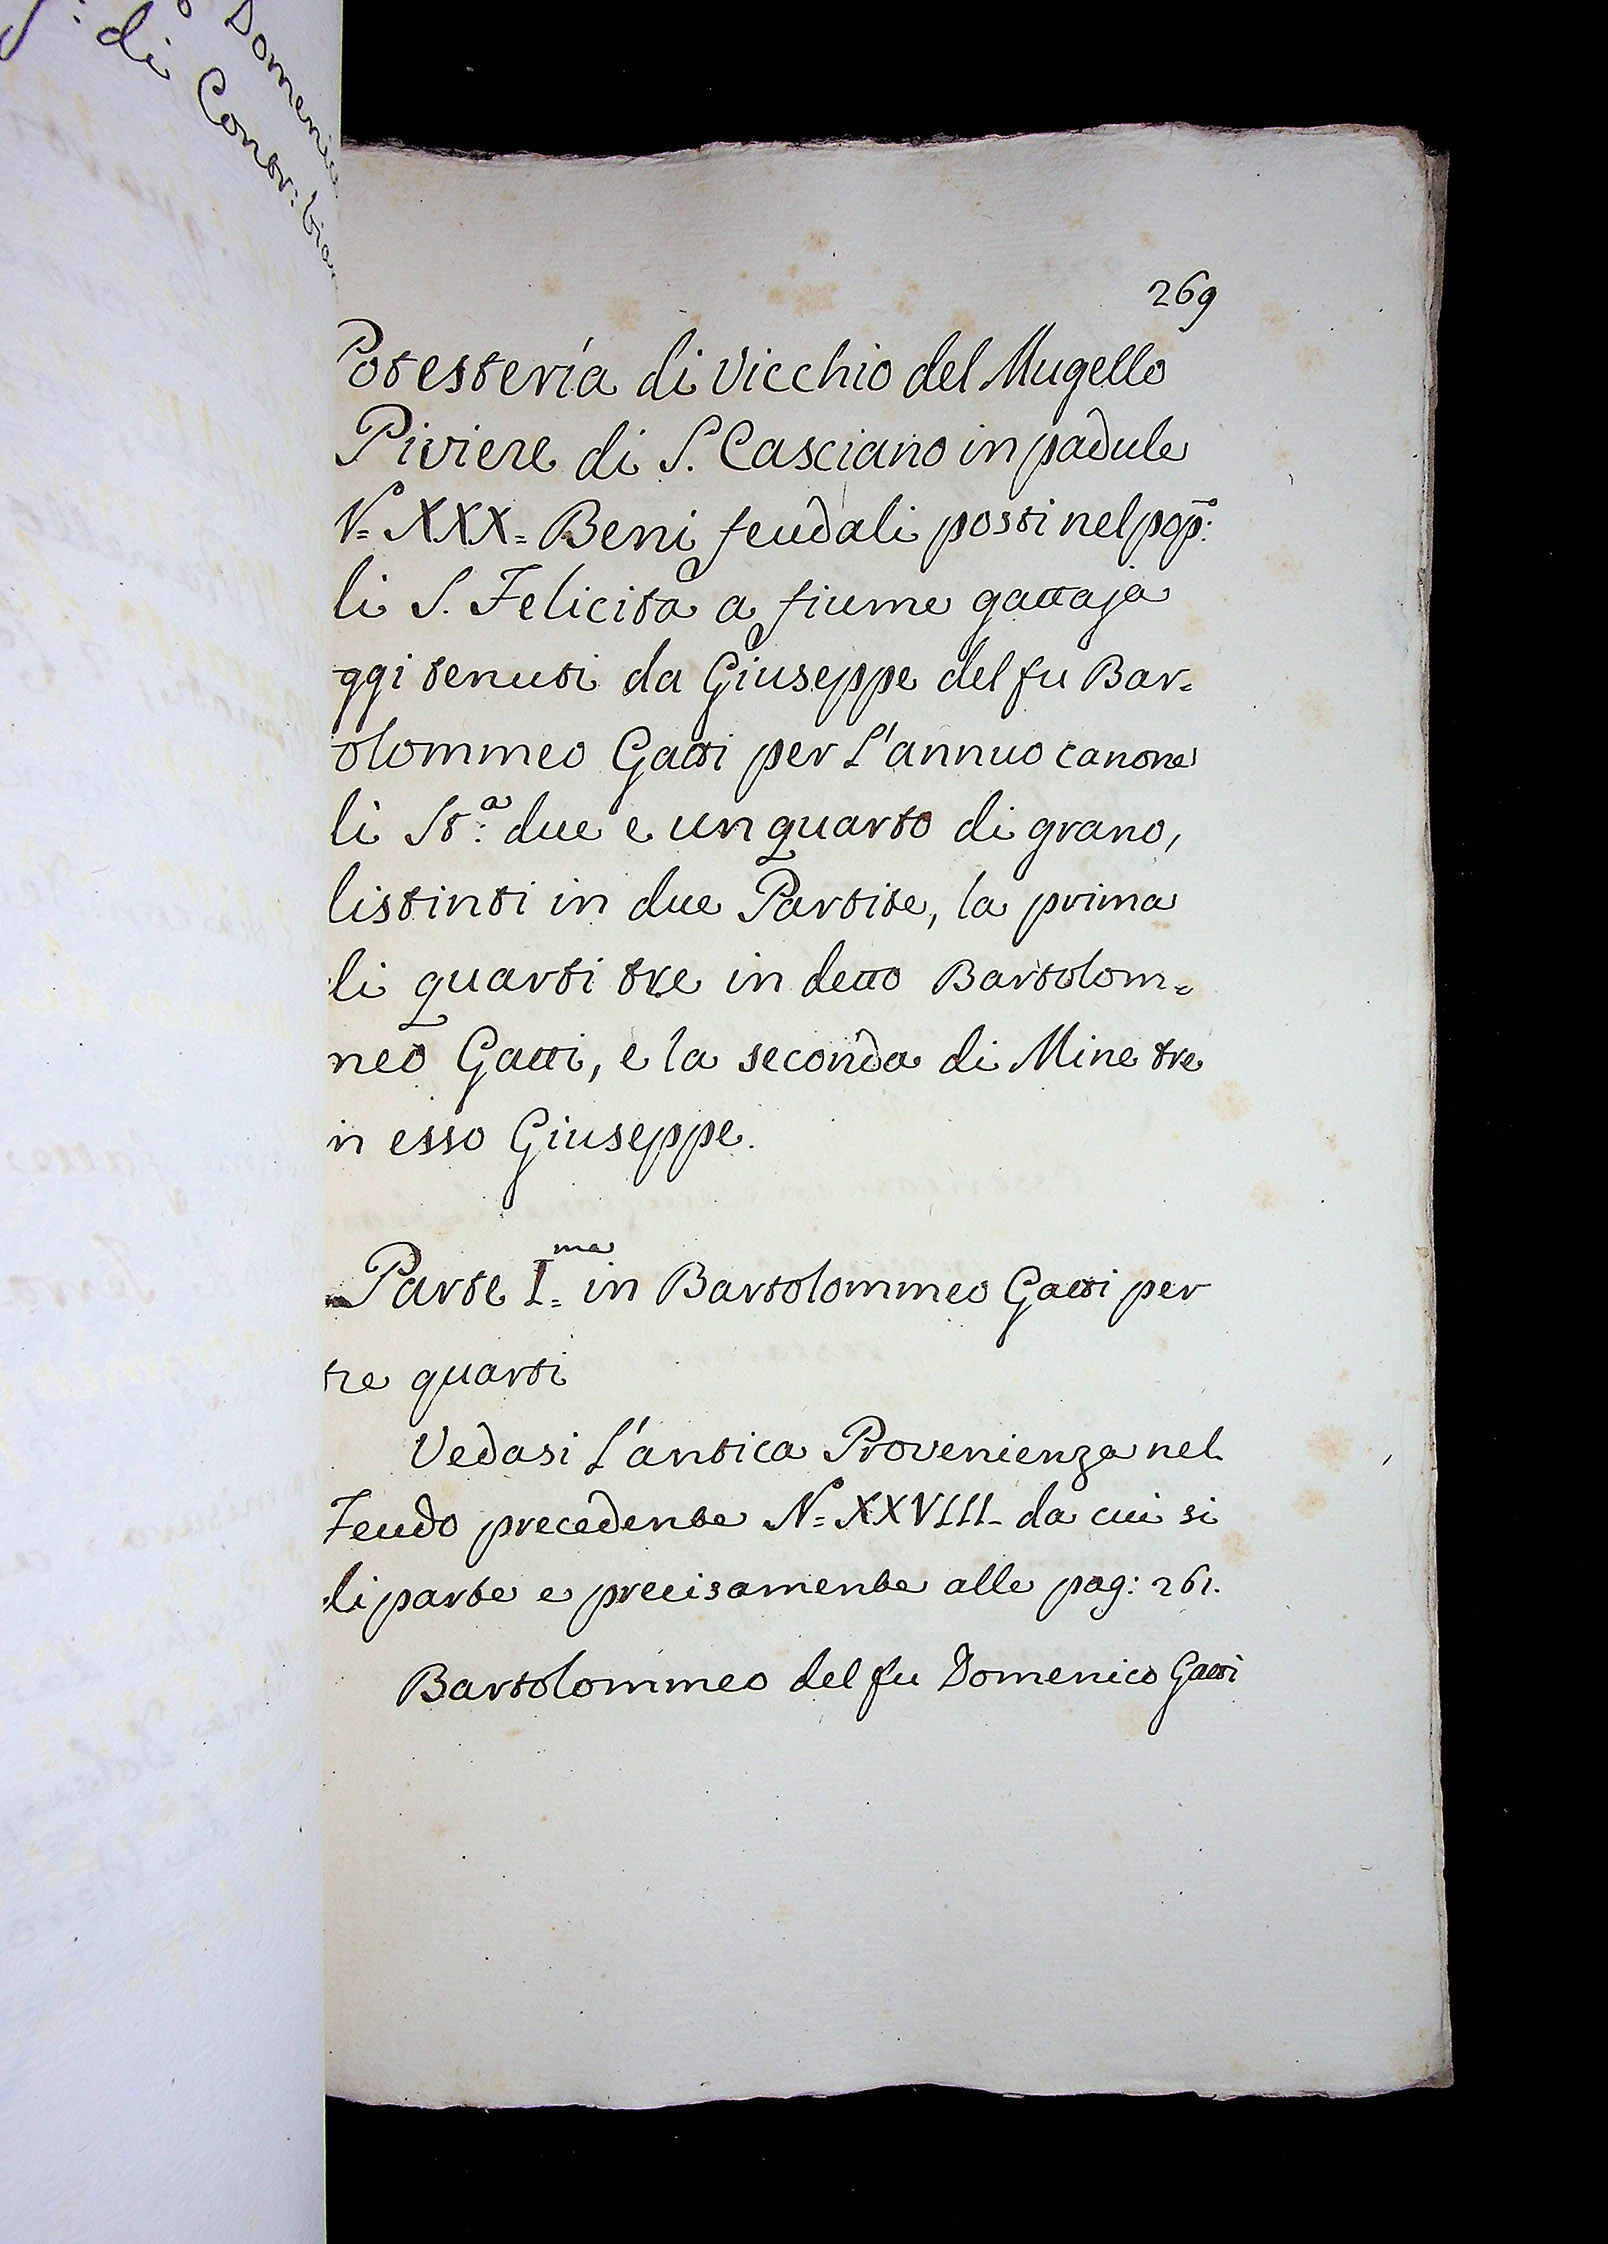 Domenico
: di Contribu
269
Potesteria di Vicchio del Mugello
Piviere di S. Casciano in padule
N= XXX= Beni feudali posti nel pop̃:
di S. Felicita a fiume gattaja
ggi tenuti da Giuseppe del fu Bar=
tolommeo Gatti per L'annuo canone
di St:ª due e un quarto di grano,
distinti in due Partite, la prima
di quarti tre in detto Bartolom=
meo Gatti, e la seconda di Mine tre
in esso Giuseppe.
Parte I=ma in Bartolommeo Gatti per
tre quarti
Vedasi L'antica Provenienza nel
Feudo precedente N= XXVIII- da cui si
diparte e precisamente alle pag: 261.
Bartolommeo del fu Domenico Gatti